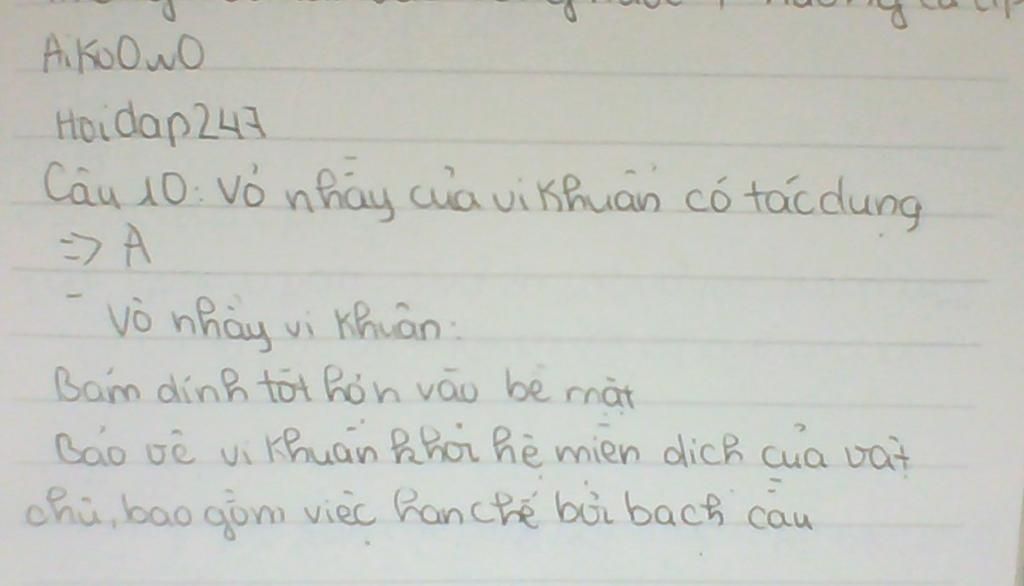 AiKuOwO
Hoidap247
Câu 10: Vỏ nhầy của vi khuẩn có tác dụng
=> A
- Vỏ nhầy vi khuẩn:
Bám dính tốt hơn vào bề mặt
Bảo vệ vi khuẩn khỏi hệ miễn dịch của vật
chủ, bao gồm việc hạn chế bởi bạch cầu